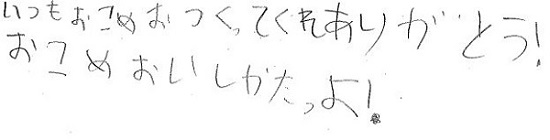 いつもおこめおつくってくれありがとう!
おこめおいしかたっよ!